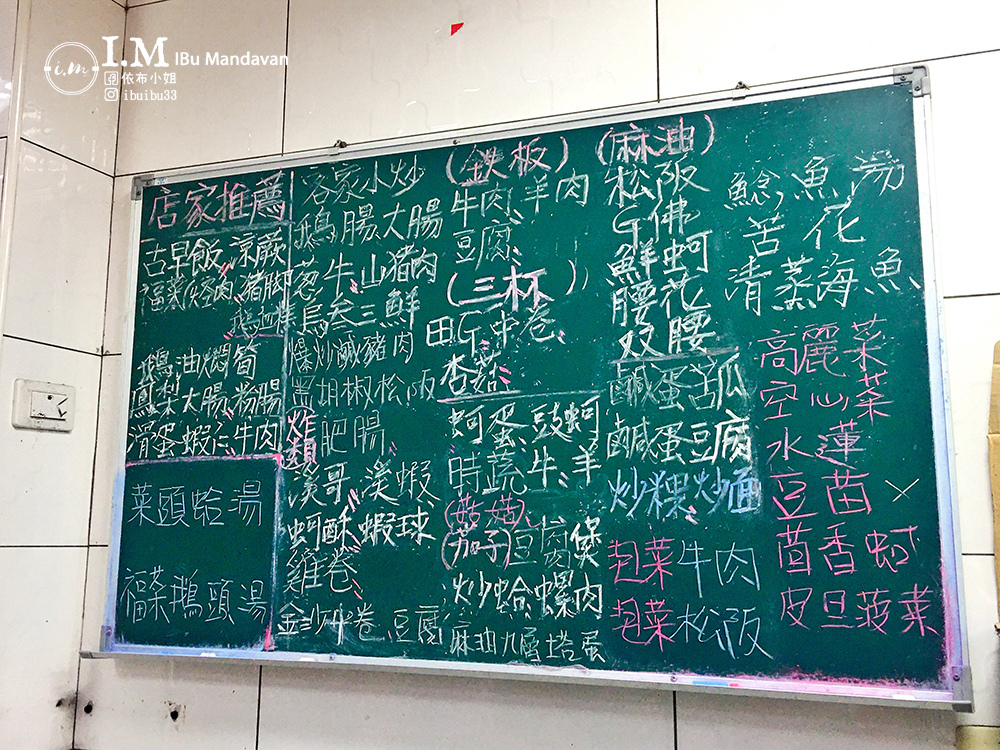 I.M IBu Mandavan
i.m
依布小姐
ibuibu33
店家推薦
古早飯、涼蕨
福菜(烤)肉、豬脚
鵝油燜筍
鳳梨大腸、粉腸
滑蛋蝦仁、牛肉
菜頭蛤湯
福菜鵝頭湯
客家小炒
鵝腸大腸
蔥牛、山豬肉
烏叁三鮮
爆炒鹹豬肉
黑胡椒松阪
炸類
肥腸
溪哥、溪蝦
蚵酥、蝦球
雞卷
金沙中卷、豆腐
(鉄板)
牛肉、羊肉
豆腐
(三杯)
田G、中卷
杏菇
蚵蛋、豆豉蚵
時蔬牛、羊
(菇菇)
(茄子)豆腐煲
炒蛤、螺肉
麻油九層塔蛋
(麻油)
松阪
G佛
鮮蚵
腰花
双腰
鹹蛋苦瓜
鹹蛋豆腐
炒粿炒麵
泡菜牛肉
泡菜松阪
鯰魚湯
苦花
清蒸海魚
高麗菜
空心菜
水蓮
豆苗 ×
茴香蚵
皮旦菠菜